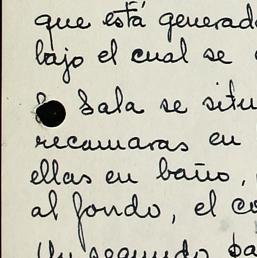 que está generad
bajo el cual se
Sala se situ
recamaras en
ellas en baño,
al fondo, el co
Un segundo pa